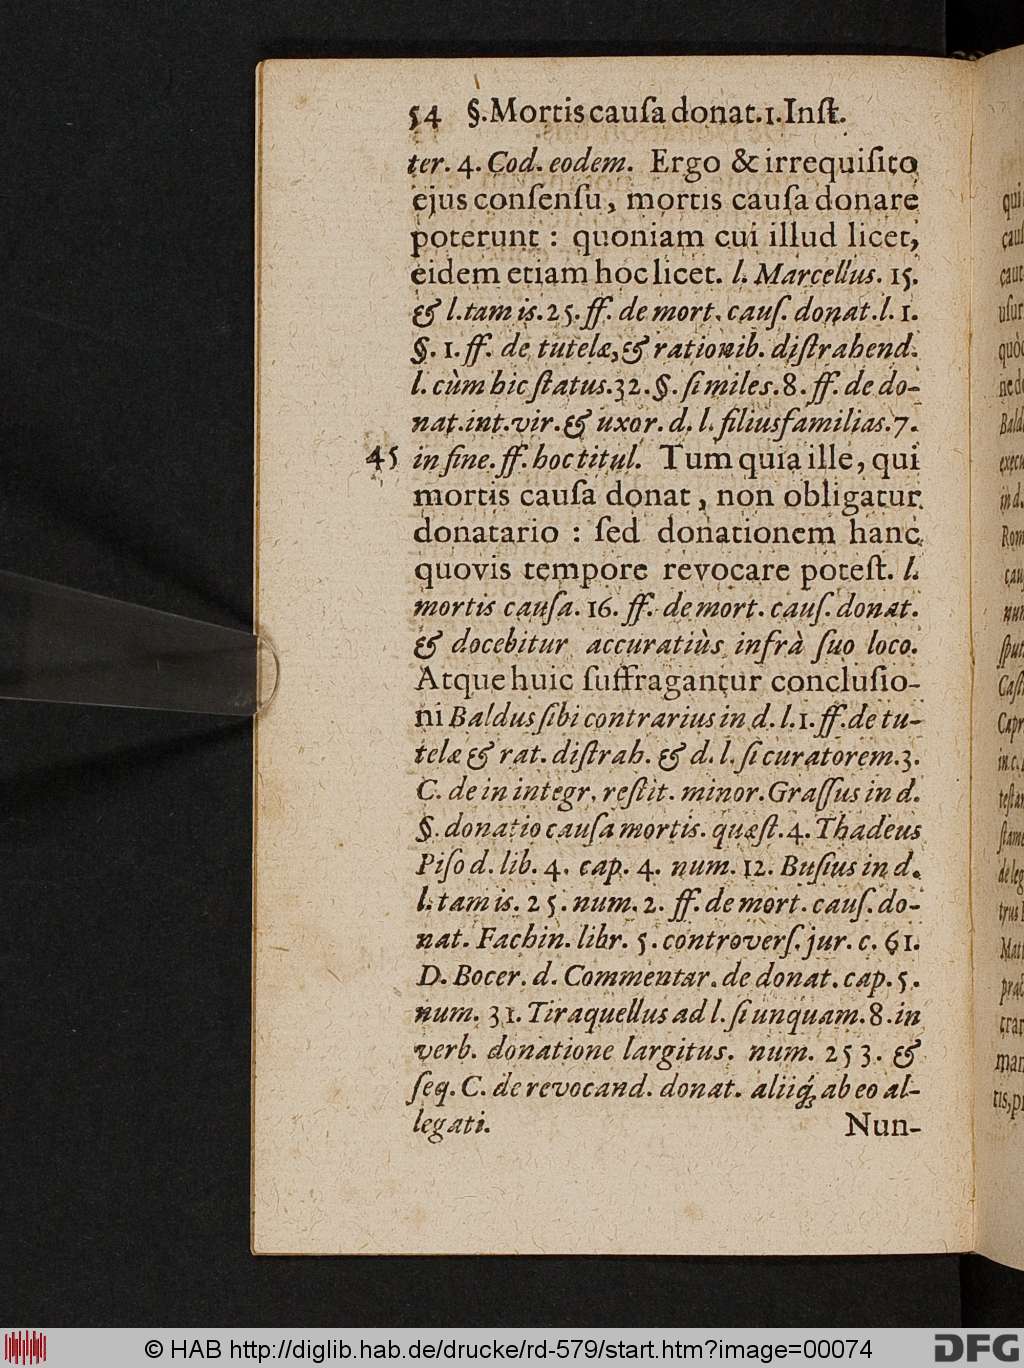 54 §. Mortis cauſa donat. 1. Inſt.
ter. 4. Cod. eodem. Ergo & irrequiſito
ejus conſenſu, mortis cauſa donare
poterunt : quoniam cui illud licet,
eidem etiam hoc licet. l. Marcellus. 15.
& l. tam is. 25. ff. de mort. cauſ. donat. l. 1.
§. 1. ff. de tutelæ, & rationib. diſtrahend.
l. cùm hic ſtatus. 32. §. ſi miles. 8. ff. de do-
nat. int. vir. & uxor. d. l. filiusfamilias. 7.
45 in fine. ff. hoc titul. Tum quia ille, qui
mortis cauſa donat, non obligatur
donatario : ſed donationem hanc
quovis tempore revocare poteſt. l.
mortis cauſa. 16. ff. de mort. cauſ. donat.
& docebitur accuratiùs infrà ſuo loco.
Atque huic ſuffragantur concluſio-
ni Baldus ſibi contrarius in d. l. 1. ff. de tu-
telæ & rat. diſtrah. & d. l. ſi curatorem. 3.
C. de in integr. reſtit. minor. Graſſus in d.
§. donatio cauſa mortis. quæſt. 4. Thadeus
Piſo d. lib. 4. cap. 4. num. 12. Buſius in d.
l. tam is. 25. num. 2. ff. de mort. cauſ. do-
nat. Fachin. libr. 5. controverſ. jur. c. 61.
D. Bocer. d. Commentar. de donat. cap. 5.
num. 31. Tiraquellus ad l. ſi unquam. 8. in
verb. donatione largitus. num. 253. &
ſeq. C. de revocand. donat. aliiq́; ab eo al-
legati. Nun-
© HAB http://diglib.hab.de/drucke/rd-579/start.htm?image=00074
DFG